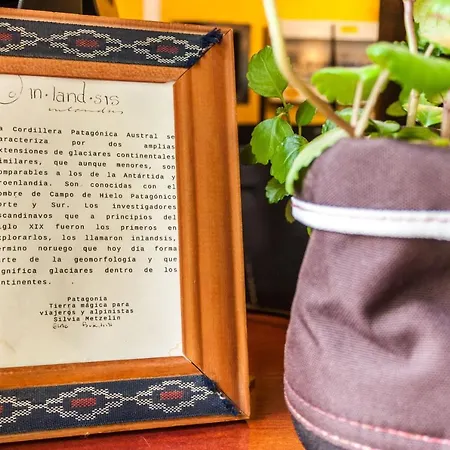 in·land·sis
a Cordillera Patagónica Austral se
aracteriza por dos amplias
xtensiones de glaciares continentales
imilares, que aunque menores, son
omparables a los de la Antártida y
roenlandia. Son conocidas con el
ombre de Campo de Hielo Patagónico
orte y Sur. Los investigadores
scandinavos que a principios del
iglo XIX fueron los primeros en
xplorarlos, los llamaron inlandsis,
érmino noruego que hoy día forma
arte de la geomorfología y que
ignifica glaciares dentro de los
ontinentes.
Patagonia
Tierra mágica para
viajeros y alpinistas
Silvia Metzelin